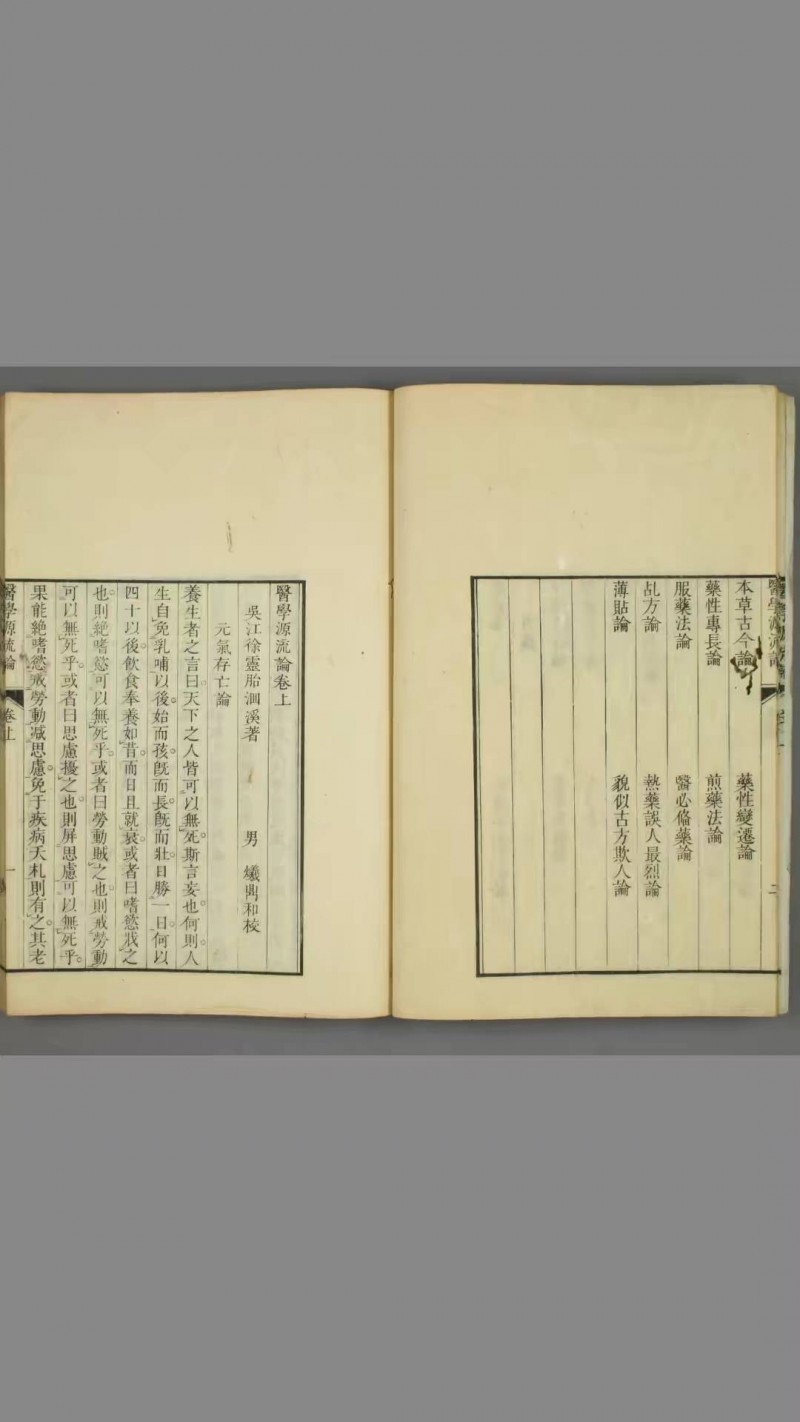 醫學源流論
二
本草古今論 藥性變遷論
藥性專長論 煎藥法論
服藥法論 醫必備藥論
乩方論 熱藥誤人最烈論
薄貼論 貌似古方欺人論
醫學源流論卷上
吳江徐靈胎洄溪著 男 爔鼎和校
元氣存亡論
養生者之言曰天下之人皆可以無死斯言妄也何則人
生自免乳哺以後始而孩旣而長旣而壯日勝一日何以
四十以後飲食奉養如昔而日且就衰或者曰嗜慾戕之
也則絶嗜慾可以無死乎或者曰勞動賊之也則戒勞動
可以無死乎或者曰思慮擾之也則屏思慮可以無死乎
果能絶嗜慾戒勞動減思慮免于疾病夭札則有之其老
醫學源流論 卷上 一